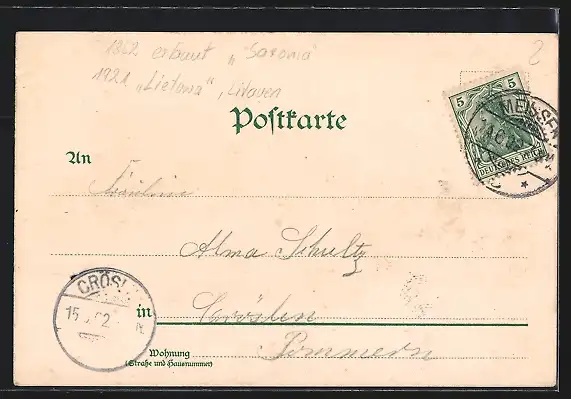 1862 erbaut „Saxonia"
1921 „Lietuva", Litauen
2
Postkarte
5 5
DEUTSCHES REICH
MEISSEN
An
Fräulein
Alma Schultz
CRÖSL
15
in Cröslin
Wohnung
(Straße und Hausnummer)
Pommern